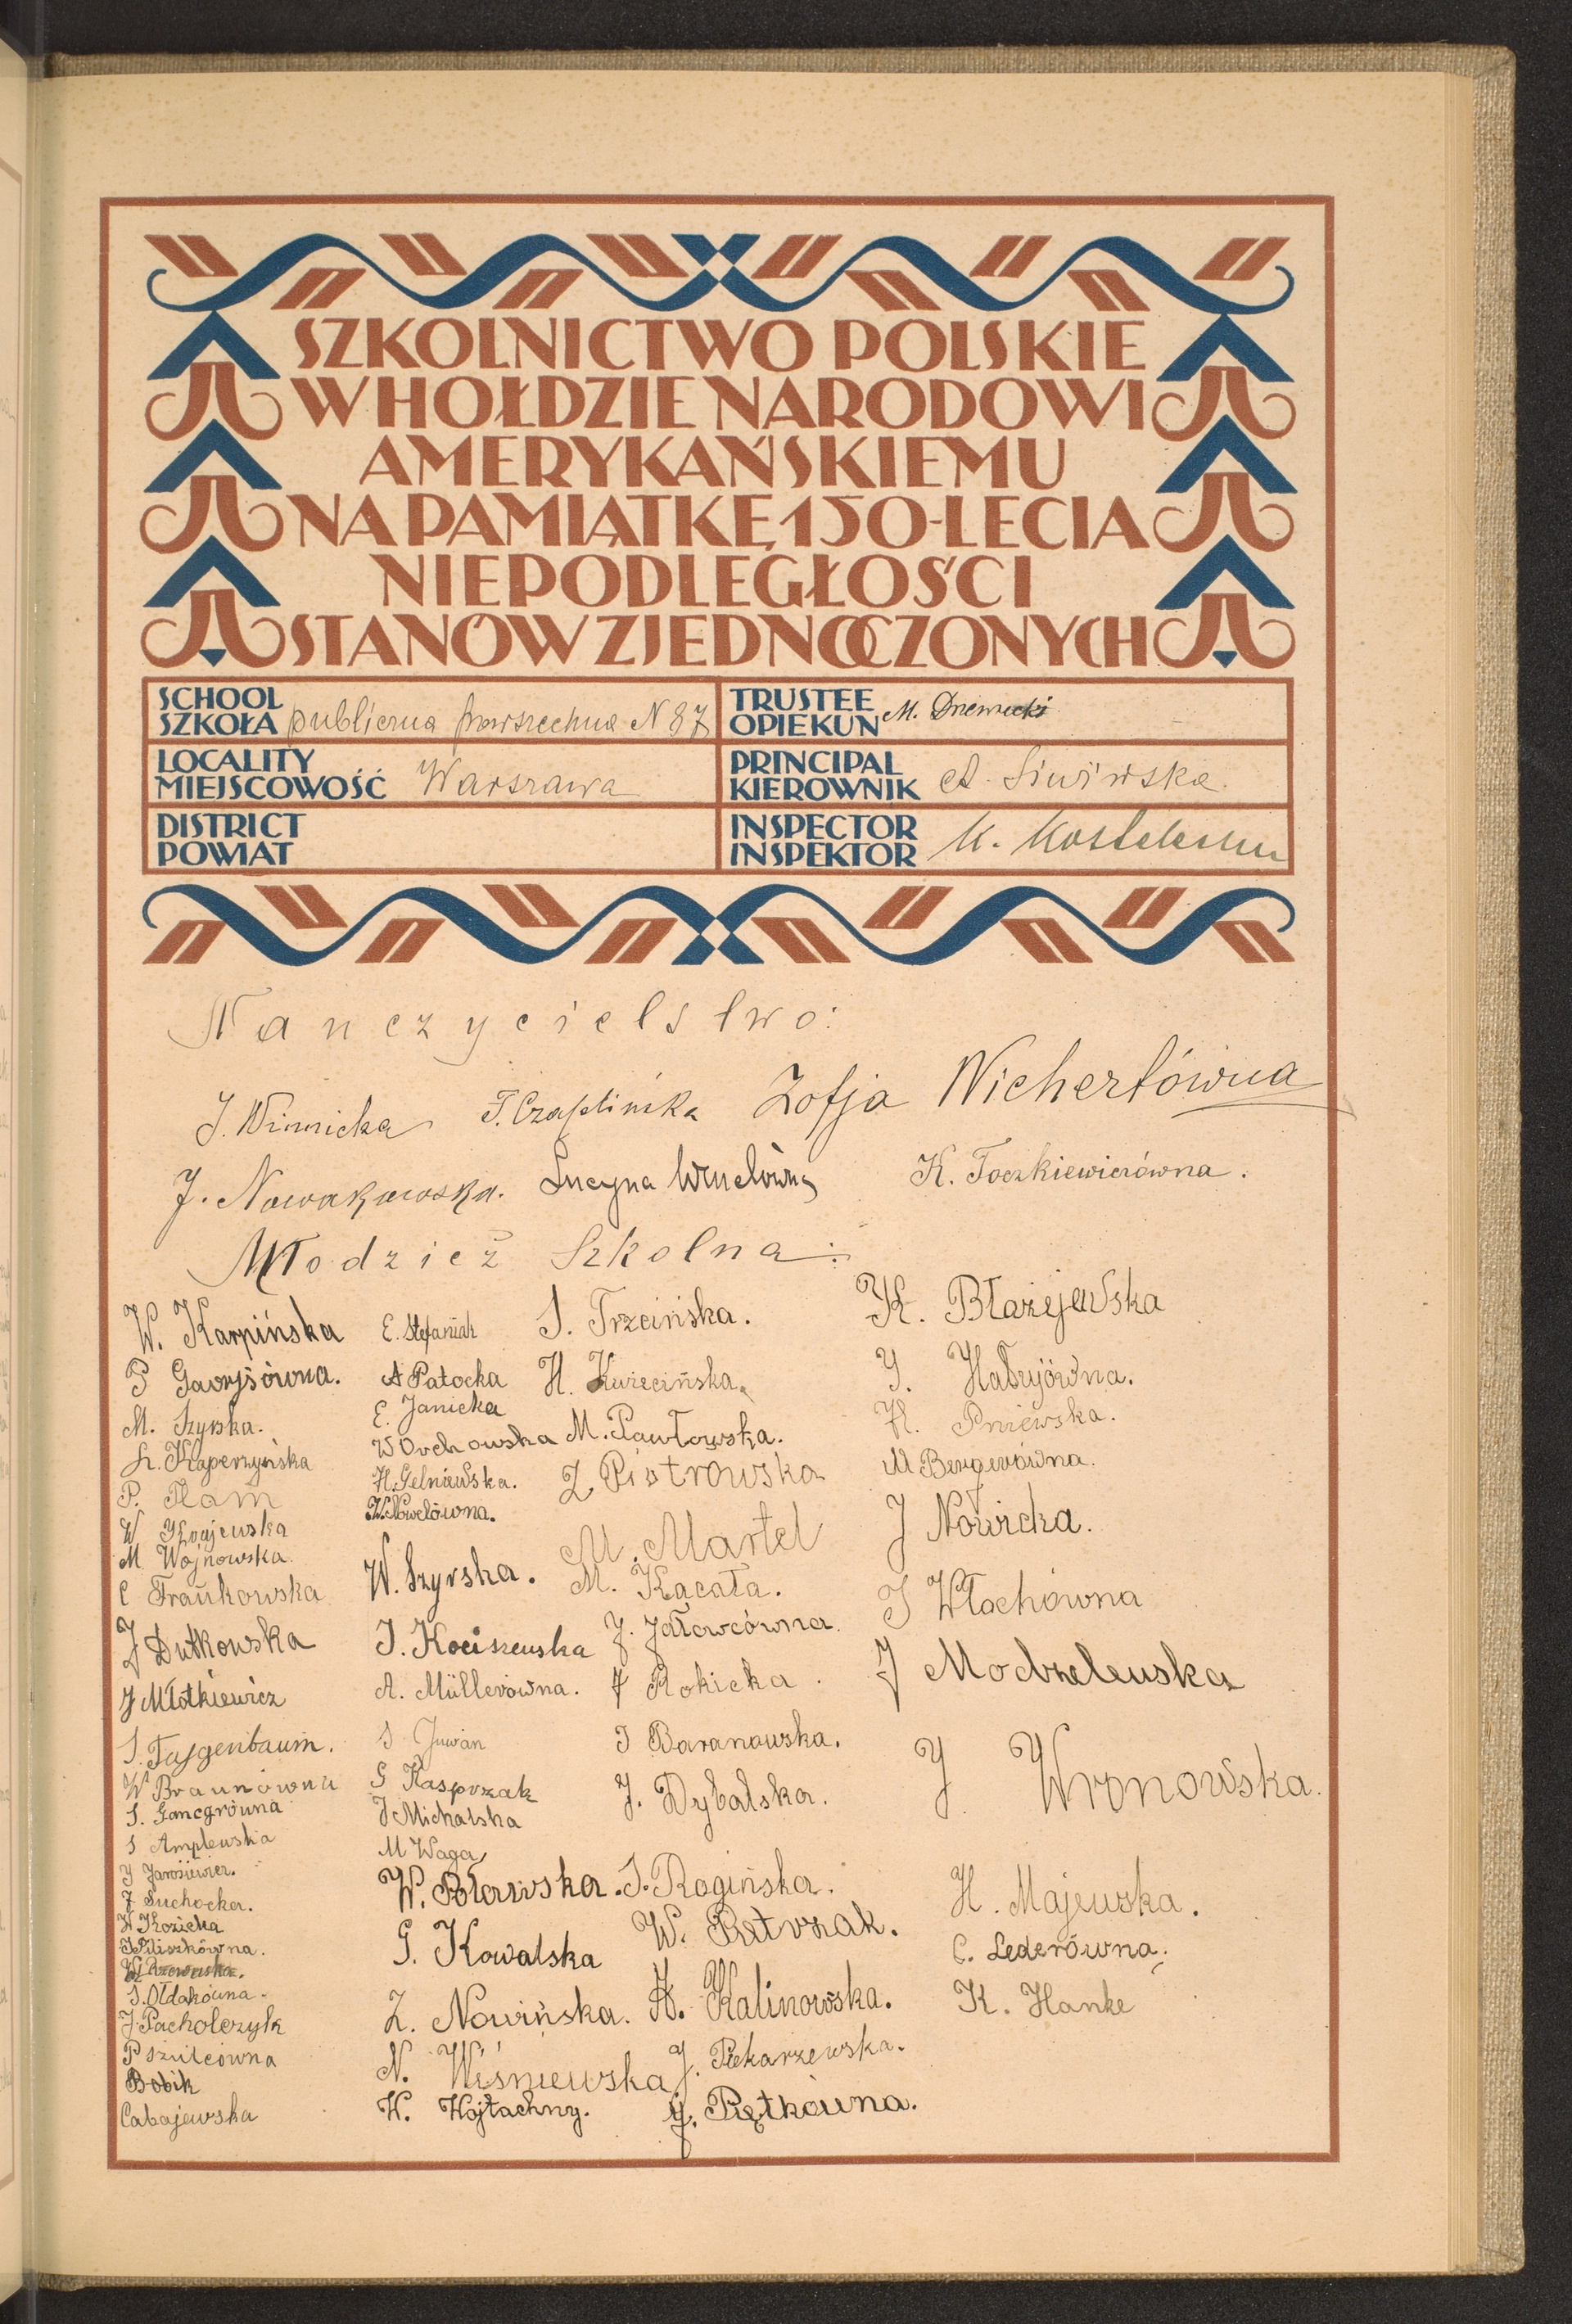 SZKOLNICTWO POLSKIE
W HOŁDZIE NARODOWI
AMERYKAŃSKIEMU
NA PAMIĄTKĘ 150-LECIA
NIEPODLEGŁOŚCI
STANÓW ZJEDNOCZONYCH
SCHOOL
SZKOŁA publiczna powszechna N 87
TRUSTEE
OPIEKUN M.
LOCALITY
MIEJSCOWOŚĆ Warszawa
PRINCIPAL
KIEROWNIK A. Siwińska
DISTRICT
POWIAT
INSPECTOR
INSPEKTOR K.
Nauczycielstwo:
J. Winnicka F. Czaplińska Zofja Wichertówna
J. Nowakowska. Lucyna K. Toczkiewiczówna.
Młodzież Szkolna:
W. Karpińska
P Gavryśówna.
M. Szyrska.
L. Kaperzyńska
P. Flam
W Krajewska
M. Wojnowska.
C Frankowska
J Dutkowska
J Młotkiewicz
S. Fajgenbaum.
W Braunówna
S. Gancgrówna
S Amplewska
J Jarosiewicz.
J Suchocka.
W Kozicka
J Piliszkówna.
S. Ołdakówna.
J. Pacholczyk
P Szulcówna
Bobik
Cabajewska
E. Stefaniak
A Patocka
E. Janicka
W Orchowska
H. Gelniewska.
W. Nowelówna.
W. Szyrska.
J. Kociszewska
A. Müllerówna.
S Juwan
G Kasprzak
J Michalska
M Waga
W.
G. Kowalska
Z. Nowińska.
N. Wiśniewska
W. Wojtachny.
S. Trzcińska.
H. Kwiecińska.
M. Pawłowska.
Z Piotrowska
M. Martel
M. Kacała.
J. Jałowcówna.
J Rokicka.
J Baranowska.
J. Dybalska.
S. Rogińska.
W. Pietrzak.
H. Kalinowska.
J. Piekarzewska.
J. Piętkówna.
K. Błażejewska
J. Habryjówna.
H. Pniewska.
M Bergerówna.
J Nowicka.
J Włochówna
J Modzelewska
J. Wronowska.
H. Majewska.
C. Lederówna.
K. Hanke